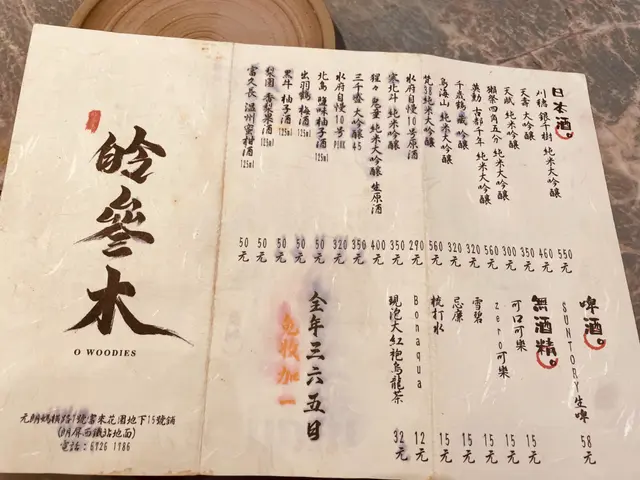 日本酒。
川鶴 銀千樹 純米大吟醸 550元
天壽 大吟醸 460元
天賦 純米大吟醸 350元
獺祭四角五分 純米大吟醸 300元
英勳 古都千年 純米大吟醸 560元
千歲鶴 吟醸 320元
鳥海山 純米大吟醸 320元
梵38純米大吟醸 560元
水府自慢10号原酒 290元
寒北斗 純米吟醸 350元
純米大吟醸 生原酒 400元
三千盛 大吟醸45 350元
水府自慢10号PINK 320元
北島 鹽味柚子酒 125ml 50元
出羽鶴 梅酒 125ml 50元
黑牛 柚子酒 125ml 50元
梨園 香梨果酒 125ml 50元
富久長 溫州蜜柑酒 125ml 50元
啤酒。
SUNTORY生啤 58元
無酒精。
可口可樂 15元
zero可樂 15元
雪碧 15元
忌廉 15元
梳打水 15元
Bonaqua 12元
現泡大紅袍烏龍茶 32元
全年三六五日
免收加一
皊叁木
O WOODIES
元朗媽橫路1號富來花園地下15號鋪
(朗屏西鐵站地面)
電話：6726 1786